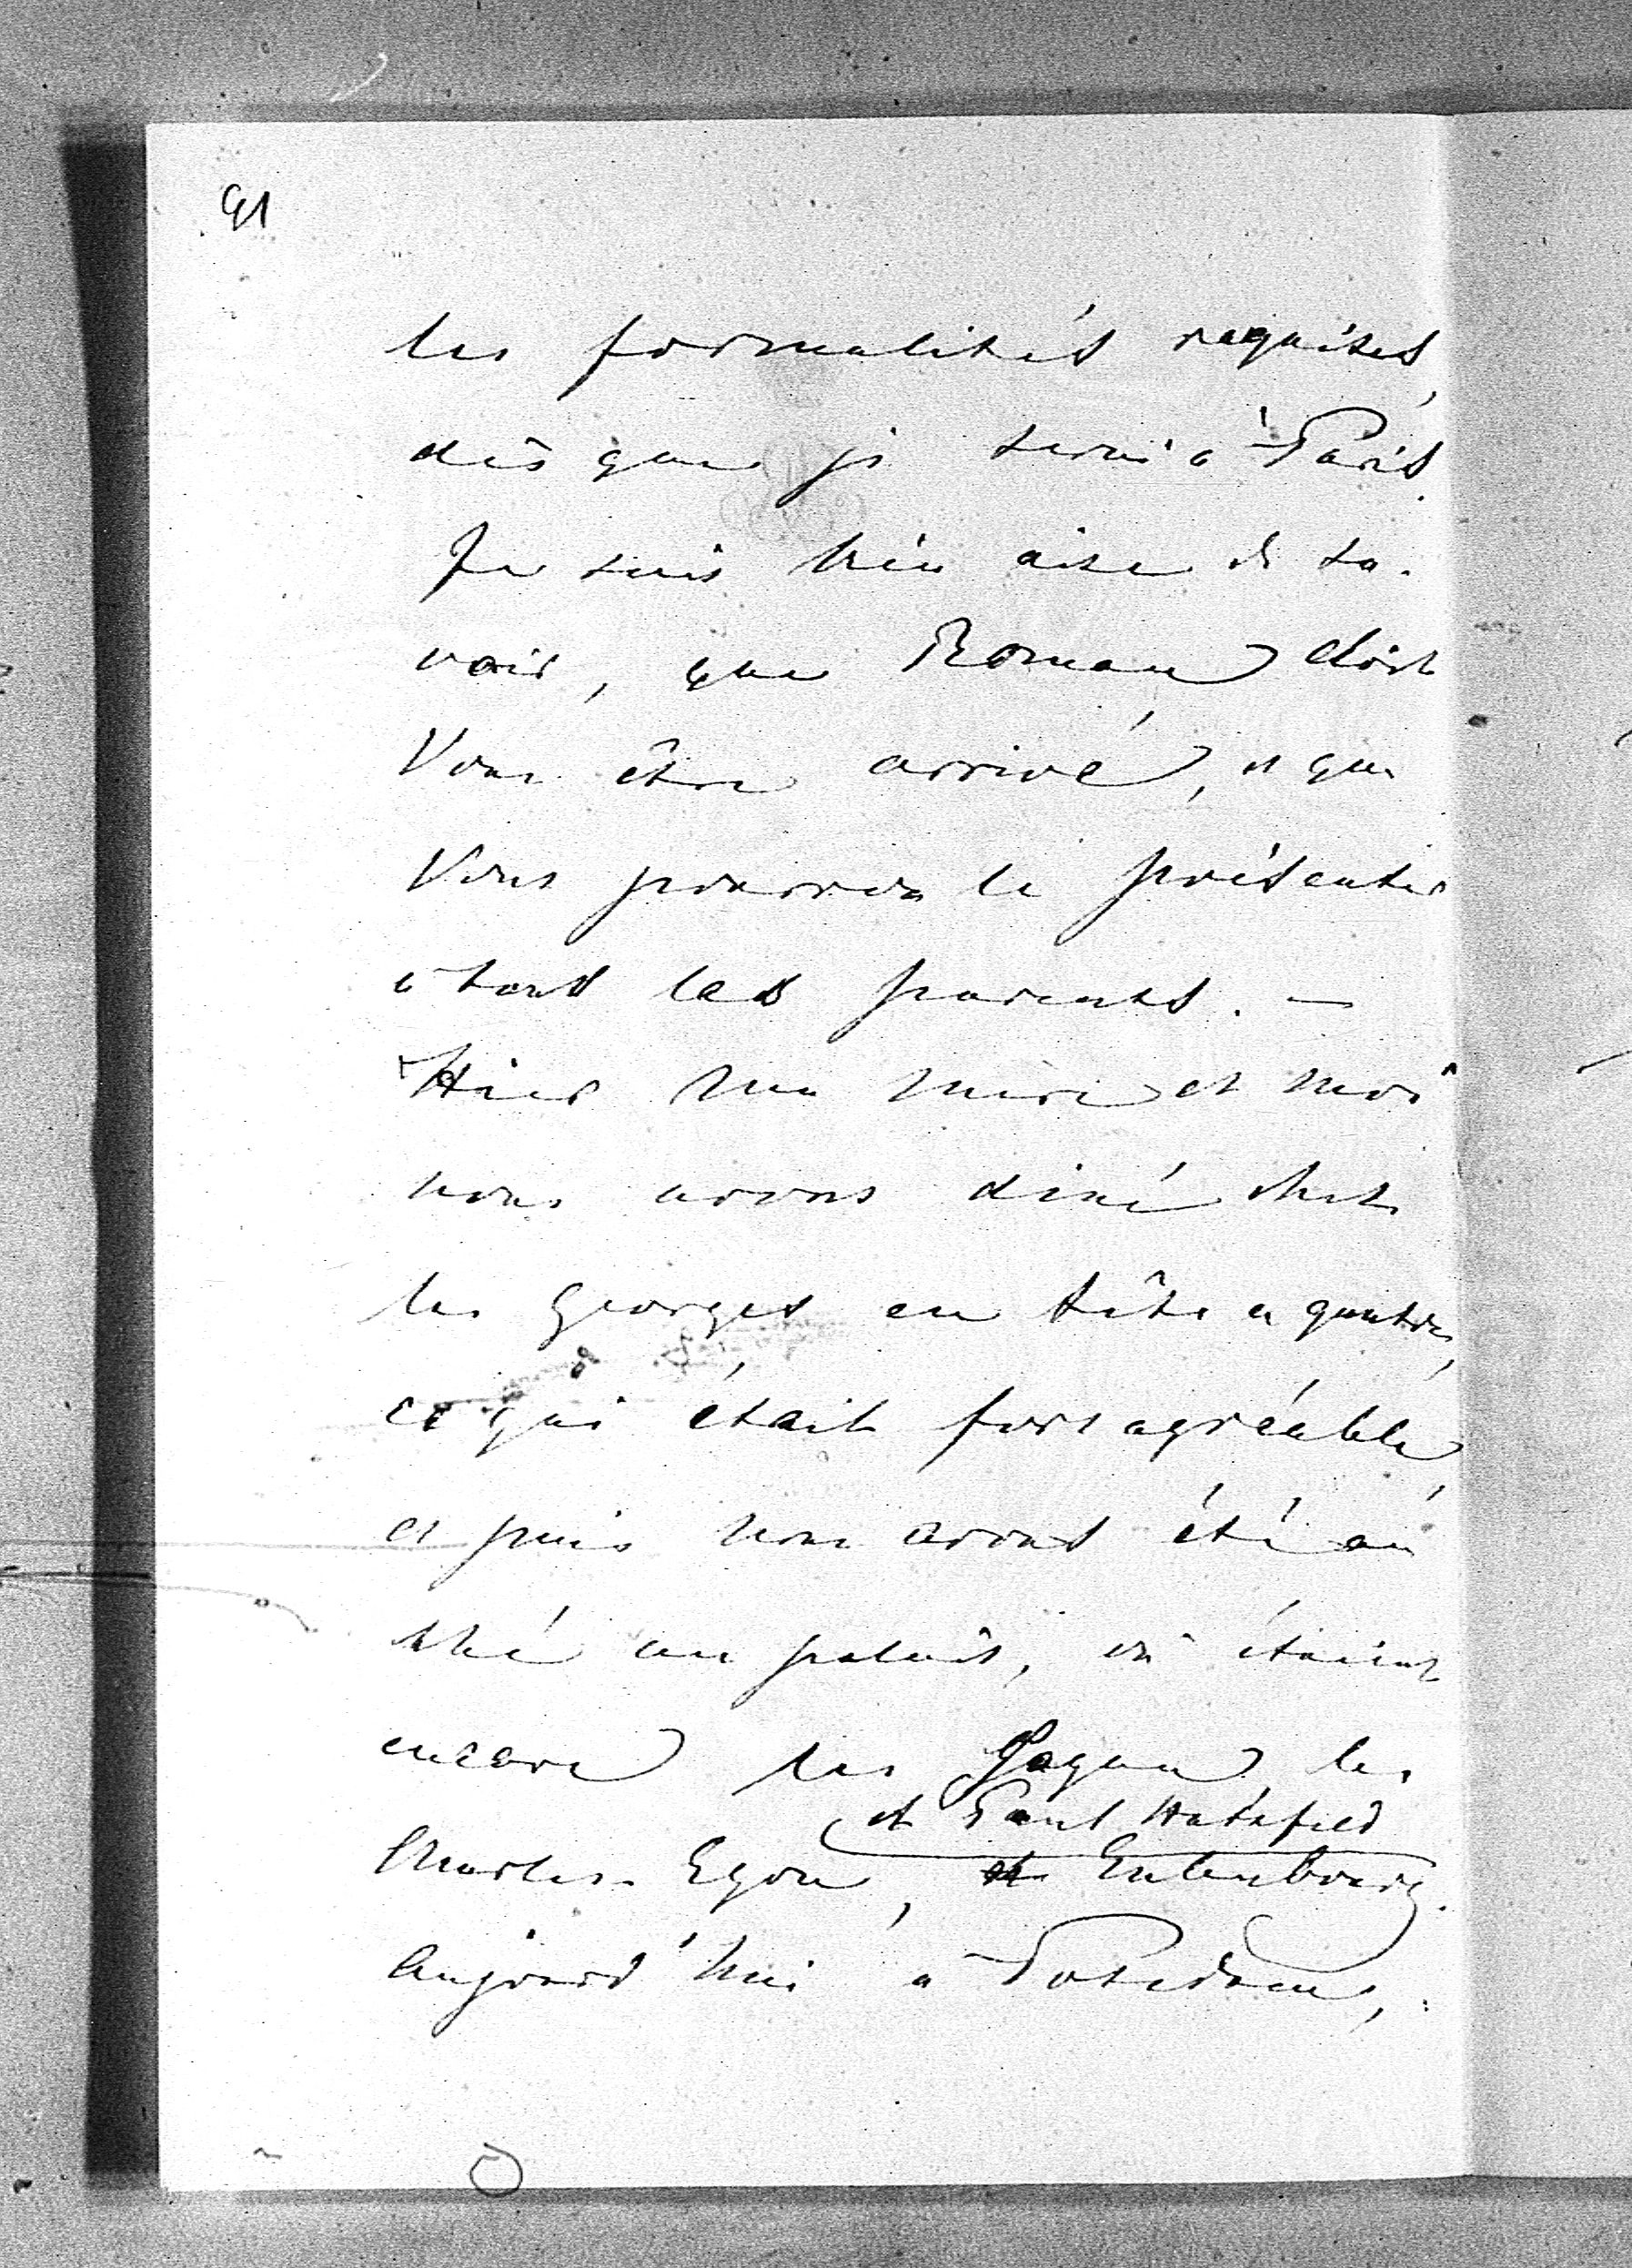 91
les formalités requises,
dès que je serai à Paris.
Je suis bien aise de sa-
voir, que Roman doit
Vous être arrivé, et que
Vous pourrez le présenter
à tous les parents. —
Hier ma mère et moi
nous avons diné chez
les Georges en tête a quatre,
ce qui était fort agréable,
et puis nous avons été au
thé au palais, où étaient
encore les Sagan, les
et Paul Hatzfeld
Charles-Egon, et Eulenbourg.
Aujourd'hui a Potsdam,